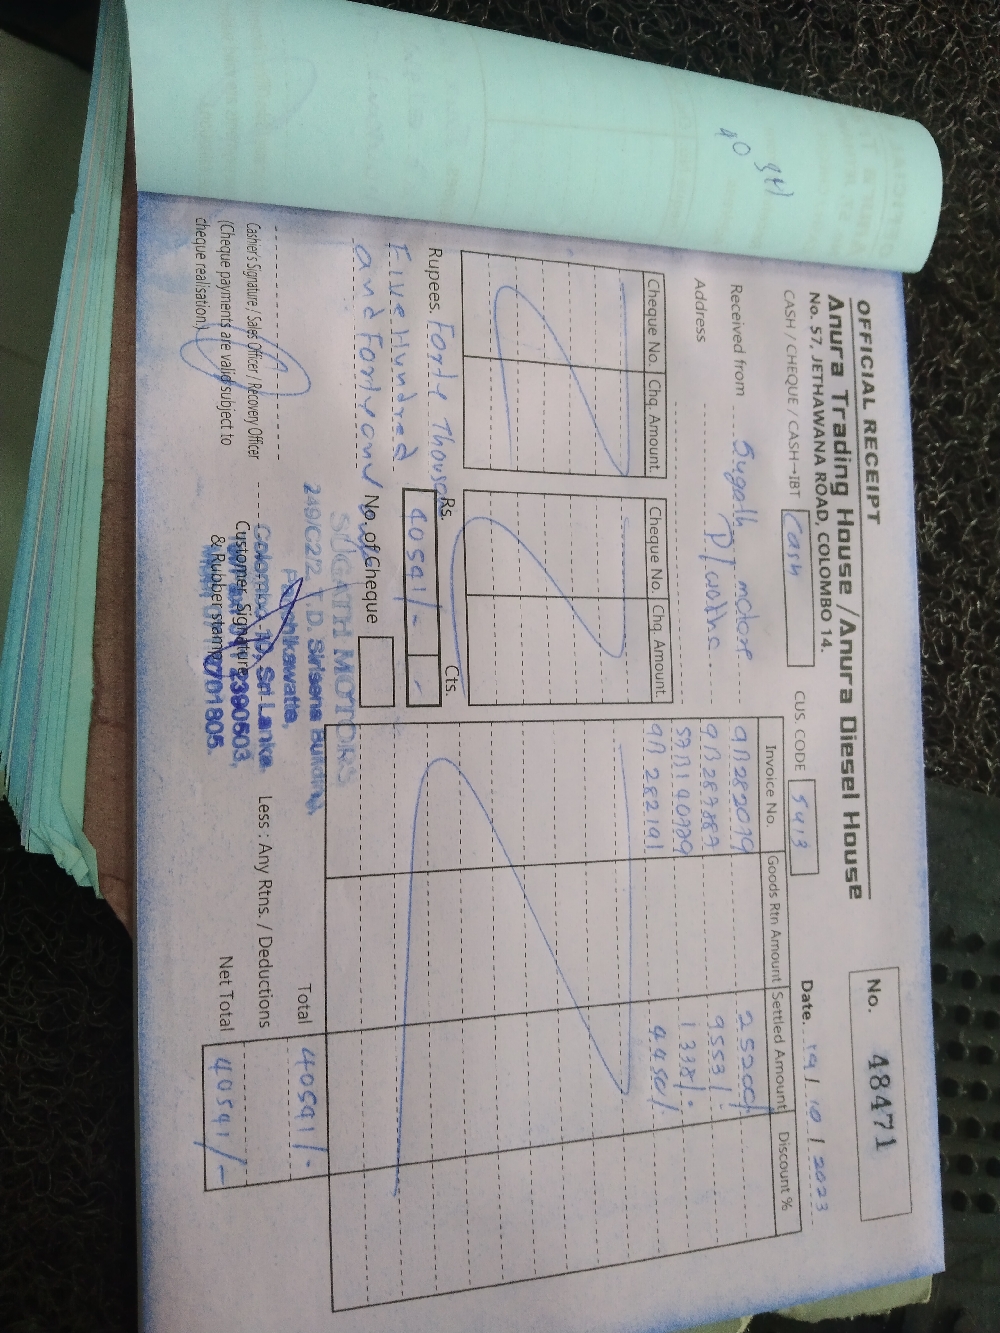 OFFICIAL RECEIPT
No. 48471
Anura Trading House / Anura Diesel House
No. 57, JETHAWANA ROAD, COLOMBO 14.
CASH / CHEQUE / CASH-IBT Cash
CUS. CODE 5413
Date. 19 / 10 / 2023
Received from Sugath motors
P/watha
Address
Cheque No. Chq. Amount
Cheque No. Chq. Amount
Invoice No. Goods Rtn Amount Settled Amount Discount %
9B282079 25200/
9B287887 9553/
57B140779 1338/-
9B282191 4450/
Rupees. Forty Thousand
Five Hundred
and Forty one
Rs. Cts.
40541/- -
No. of Cheque
Total 40541/-
Less : Any Rtns. / Deductions
Net Total 40541/-
Cashier's Signature / Sales Officer / Recovery Officer
(Cheque payments are valid subject to
cheque realisation.)
Customer Signature
& Rubber stamp
SUGATH MOTORS
249/C2/2, D. Sirisena Building,
Panchikawatte,
Colombo 10, Sri Lanka.
2390503,
0701805